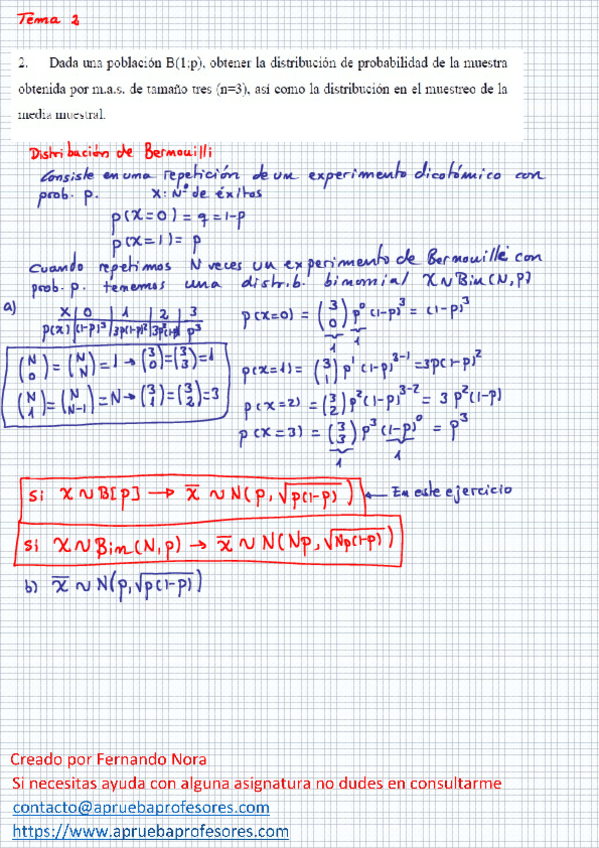 Tema 2
2. Dada una población B(1;p), obtener la distribución de probabilidad de la muestra
obtenida por m.a.s. de tamaño tres (n=3), así como la distribución en el muestreo de la
media muestral.
Distribución de Bermouilli
Consiste en una repetición de un experimento dicotómico con
prob. p. X: Nº de éxitos
p(X=0) = q = 1-p
p(X=1) = p
Cuando repetimos N veces un experimento de Bermouille con
prob. p. tenemos una distrib. binomial X~Bin(N,p)
a)
X | 0 | 1 | 2 | 3
p(X) | (1-p)³ | 3p(1-p)² | 3p²(1-p) | p³
p(X=0) = (3 0) p⁰ (1-p)³ = (1-p)³
1 1
(N 0) = (N N) = 1 → (3 0) = (3 3) = 1
(N 1) = (N N-1) = N → (3 1) = (3 2) = 3
p(X=1) = (3 1) p¹ (1-p)³⁻¹ = 3p(1-p)²
p(X=2) = (3 2) p² (1-p)³⁻² = 3p²(1-p)
p(X=3) = (3 3) p³ (1-p)⁰ = p³
1 1
Si X~B[p] → x̄ ~ N(p, √p(1-p)) ← En este ejercicio
Si X~Bin(N,p) → x̄ ~ N(Np, √Np(1-p))
b) x̄ ~ N(p, √p(1-p))
Creado por Fernando Nora
Si necesitas ayuda con alguna asignatura no dudes en consultarme
contacto@apruebaprofesores.com
https://www.apruebaprofesores.com